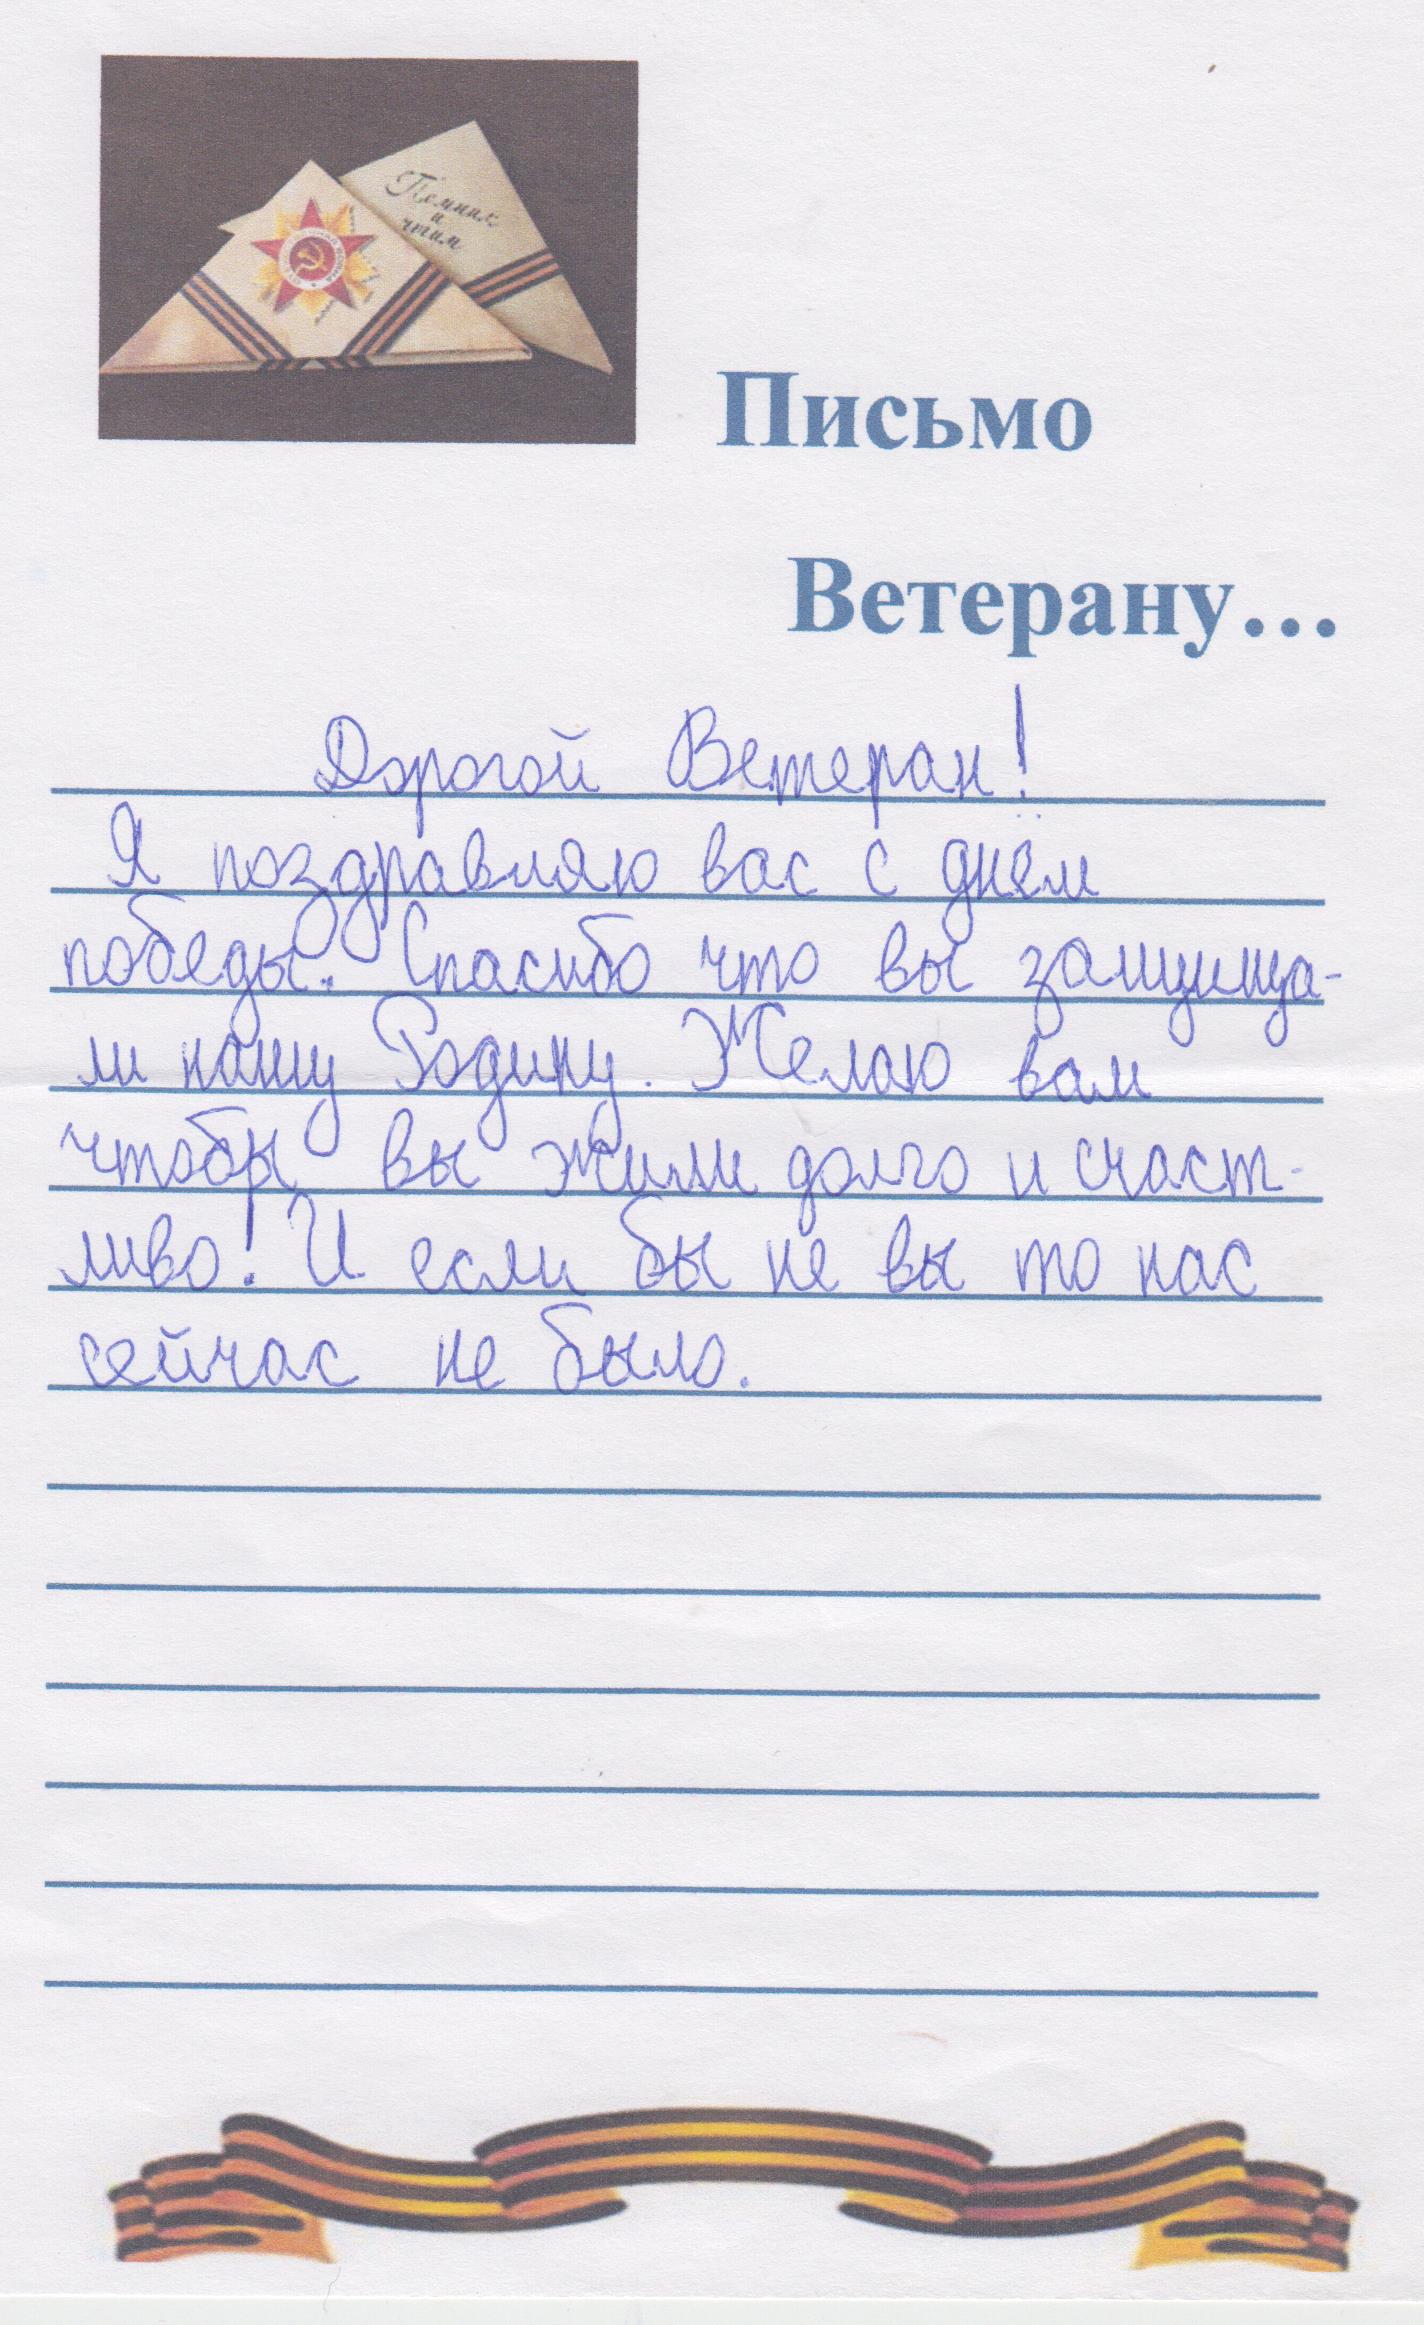 Помним
и
чтим
Письмо
Ветерану...
Дорогой Ветеран!
Я поздравляю вас с днём
победы. Спасибо что вы защища-
ли нашу Родину. Желаю вам
чтобы вы жили долго и счаст-
ливо! И если бы не вы то нас
сейчас не было.